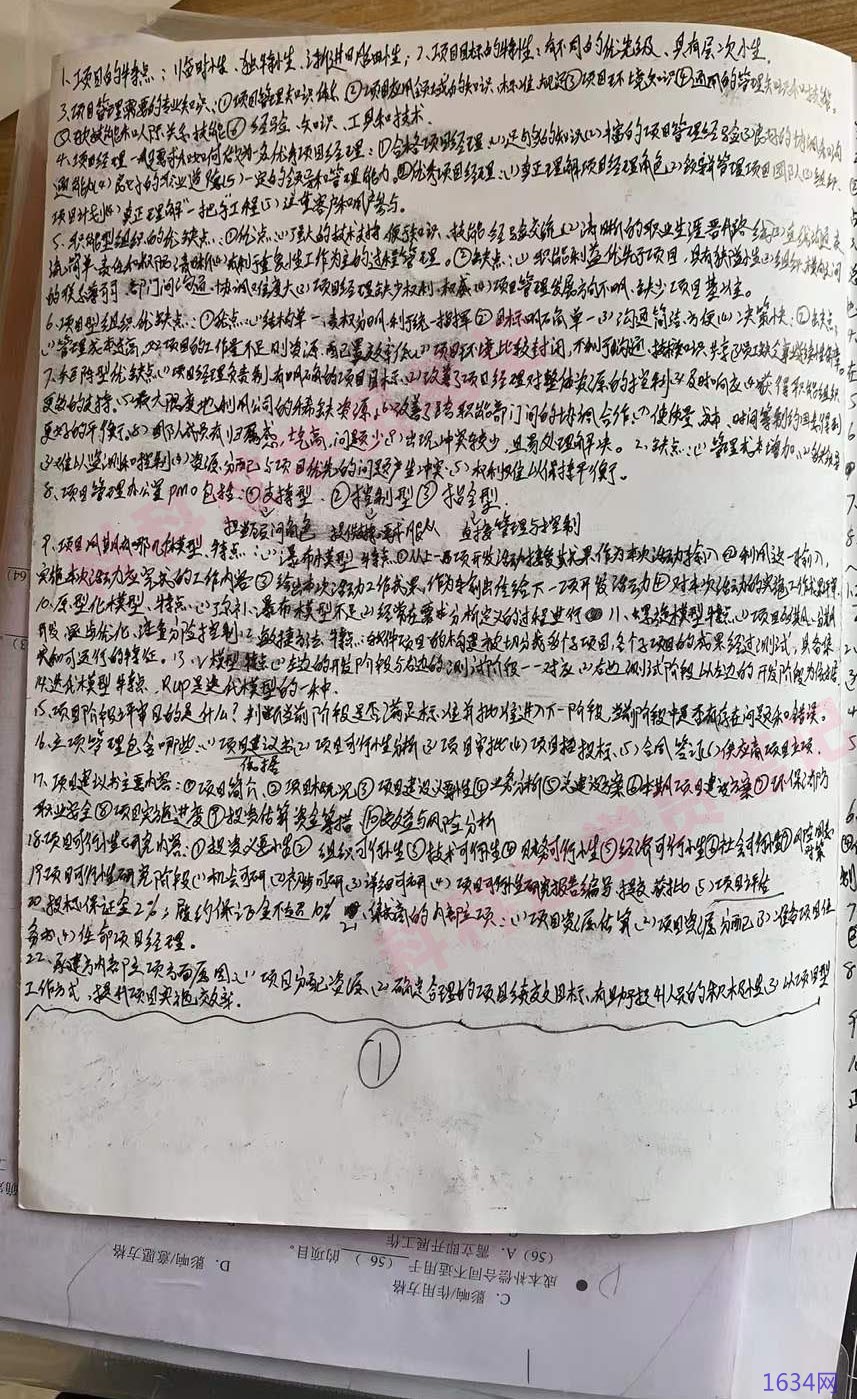 1、项目的特点：(1)临时性、独特性、渐进明细性；2、项目目标的特性：有不同的优先级、具有层次性。
3、项目管理需要的专业知识：①项目管理知识体系 ②项目应用领域的知识、标准、规定③项目环境知识④通用的管理知识和技能
⑤软技能和人际关系技能⑥经验、知识、工具和技术.
4、项目经理一般要求/如何成为一名优秀项目经理：①合格项目经理：(1)足够的知识(2)丰富的项目管理经验(3)良好的协调和沟
通能力(4)良好的职业道德(5)一定的领导和管理能力。②优秀项目经理：(1)真正理解项目经理角色(2)领导并管理项目团队(3)
项目计划(4)真正理解"一把手工程"(5)注重客户和用户参与。
5、职能型组织的优缺点：①优点：(1)强大的技术支持，便于知识、技能、经验交流(2)清晰的职业生涯晋升路线(3)直线沟通、交
流简单、责任和权限清晰(4)有利于重复性工作为主的过程管理。②缺点：(1)职能利益优先于项目，具有狭隘性(2)组织横向之间
的联系薄弱、部门间沟通、协调难度大(3)项目经理缺少权利、权威(4)项目管理发展方向不明，缺少项目基准。
6、项目型组织优缺点：①优点：(1)结构单一，责权分明，利于统一指挥(2)目标明确单一(3)沟通简洁、方便(4)决策快；②缺点：
(1)管理成本过高，如项目的工作量不足则资源配置效率低(2)项目环境比较封闭，不利于沟通、技术知识共享(3)员工缺乏事业上的连续性和保障。
7、矩阵型优缺点：(1)项目经理负责制，有明确的项目目标(2)改善了项目经理对整体资源的控制(3)及时响应(4)获得职能组织
更多的支持。(5)最大限度地利用公司的稀缺资源(6)改善了跨职能部门间的协调合作(7)使质量、成本、时间等制约因素得到
更好的平衡(8)团队成员有归属感，士气高，问题少(9)出现冲突较少，且易处理解决。2、缺点：(1)管理成本增加(2)多头领导
(3)难以监测和控制(4)资源分配与项目优先的问题产生冲突(5)权利难以保持平衡了。
8、项目管理办公室PMO包括：①支持型 ②控制型③指令型.
担当顾问角色 提供支持要求服从 直接管理与控制
9、项目周期有哪几种模型，特点：(1)瀑布模型 特点①从上一项开发活动接受其成果作为本次活动输入 ②利用这一输入，
实施本次活动应完成的工作内容③给出本次活动工作成果，作为输出传给下一项开发活动④对本次活动的实施工作成果评审
10、原型化模型，特点：(1)弥补瀑布模型不足(2)经常在需求分析定义的过程进行 11、螺旋模型特点：
开发，逐步优化，注重分险控制 12、敏捷方法 特点：软件项目的构建被切分成多个子项目，各个子项目的成果经过测试，具备集
成和可运行的特征。13、V模型特点(1)左边的开发阶段与右边的测试阶段一一对应(2)右边测试阶段以左边的开发阶段为依据
14、迭代模型特点，RUP是迭代模型的一种.
15、项目阶段评审目的是什么？判断当前阶段是否满足标准并批准进入下一阶段，当前阶段中是否有存在问题和错误。
16、立项管理包含哪些：(1)项目建议书(2)项目可行性分析(3)项目审批(4)项目招投标(5)合同签订(6)供应商项目立项.
依据
17、项目建议书主要内容：①项目简介②项目概况③项目建设必要性④业务分析⑤总建设方案⑥本期项目建设方案⑦环保消防
职业安全⑧项目实施进度⑨投资估算资金筹措⑩效益与风险分析
18、项目可行性研究内容：①投资必要性② 组织可行性③技术可行性④财务可行性⑤经济可行性⑥社会可行性⑦风险因素
对策
19、项目可行性研究阶段(1)机会可研(2)初步可研(3)详细可研(4)项目可行性研究报告编写提交获批(5)项目评估
20、投标保证金2%；履约保证金不超10% 21、供应商的内部立项：(1)项目资源估算(2)项目资源分配(3)准备项目任
务书(4)任命项目经理。
22、承建方内部立项方面原因(1)项目分配资源(2)确定合理的项目绩效目标，有助于提升人员的积极性(3)以项目型
工作方式，提升项目实施效率.
①
D、影响/意愿方格
C、影响/作用方格
● 成本补偿合同不适用于 (56) 的项目。
(56) A、需立即开展工作
1634网